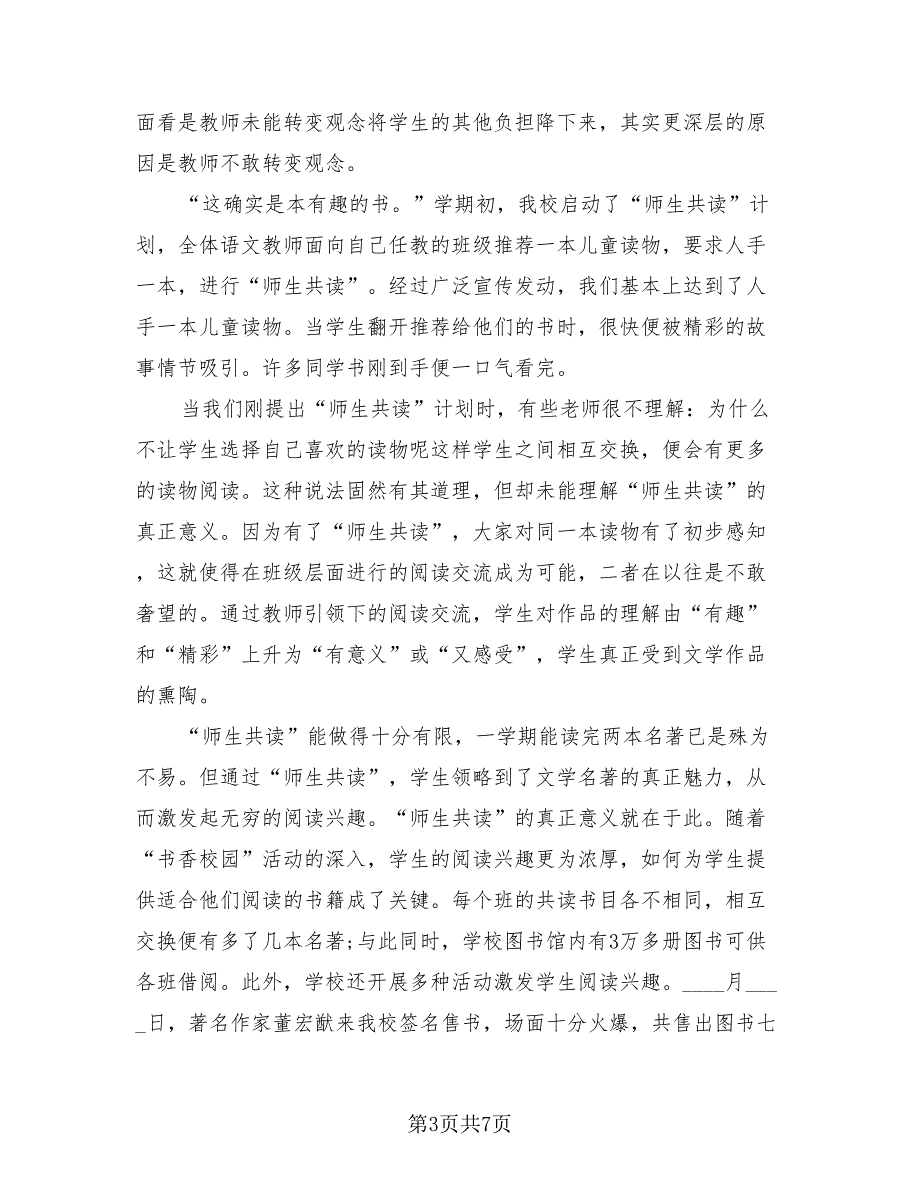 面看是教师未能转变观念将学生的其他负担降下来，其实更深层的原
因是教师不敢转变观念。
“这确实是本有趣的书。”学期初，我校启动了“师生共读”计
划，全体语文教师面向自己任教的班级推荐一本儿童读物，要求人手
一本，进行“师生共读”。经过广泛宣传发动，我们基本上达到了人
手一本儿童读物。当学生翻开推荐给他们的书时，很快便被精彩的故
事情节吸引。许多同学书刚到手便一口气看完。
当我们刚提出“师生共读”计划时，有些老师很不理解：为什么
不让学生选择自己喜欢的读物呢这样学生之间相互交换，便会有更多
的读物阅读。这种说法固然有其道理，但却未能理解“师生共读”的
真正意义。因为有了“师生共读”，大家对同一本读物有了初步感知
，这就使得在班级层面进行的阅读交流成为可能，二者在以往是不敢
奢望的。通过教师引领下的阅读交流，学生对作品的理解由“有趣”
和“精彩”上升为“有意义”或“又感受”，学生真正受到文学作品
的熏陶。
“师生共读”能做得十分有限，一学期能读完两本名著已是殊为
不易。但通过“师生共读”，学生领略到了文学名著的真正魅力，从
而激发起无穷的阅读兴趣。“师生共读”的真正意义就在于此。随着
“书香校园”活动的深入，学生的阅读兴趣更为浓厚，如何为学生提
供适合他们阅读的书籍成了关键。每个班的共读书目各不相同，相互
交换便有多了几本名著;与此同时，学校图书馆内有3万多册图书可供
各班借阅。此外，学校还开展多种活动激发学生阅读兴趣。____月___
_日，著名作家董宏猷来我校签名售书，场面十分火爆，共售出图书七
第3页共7页